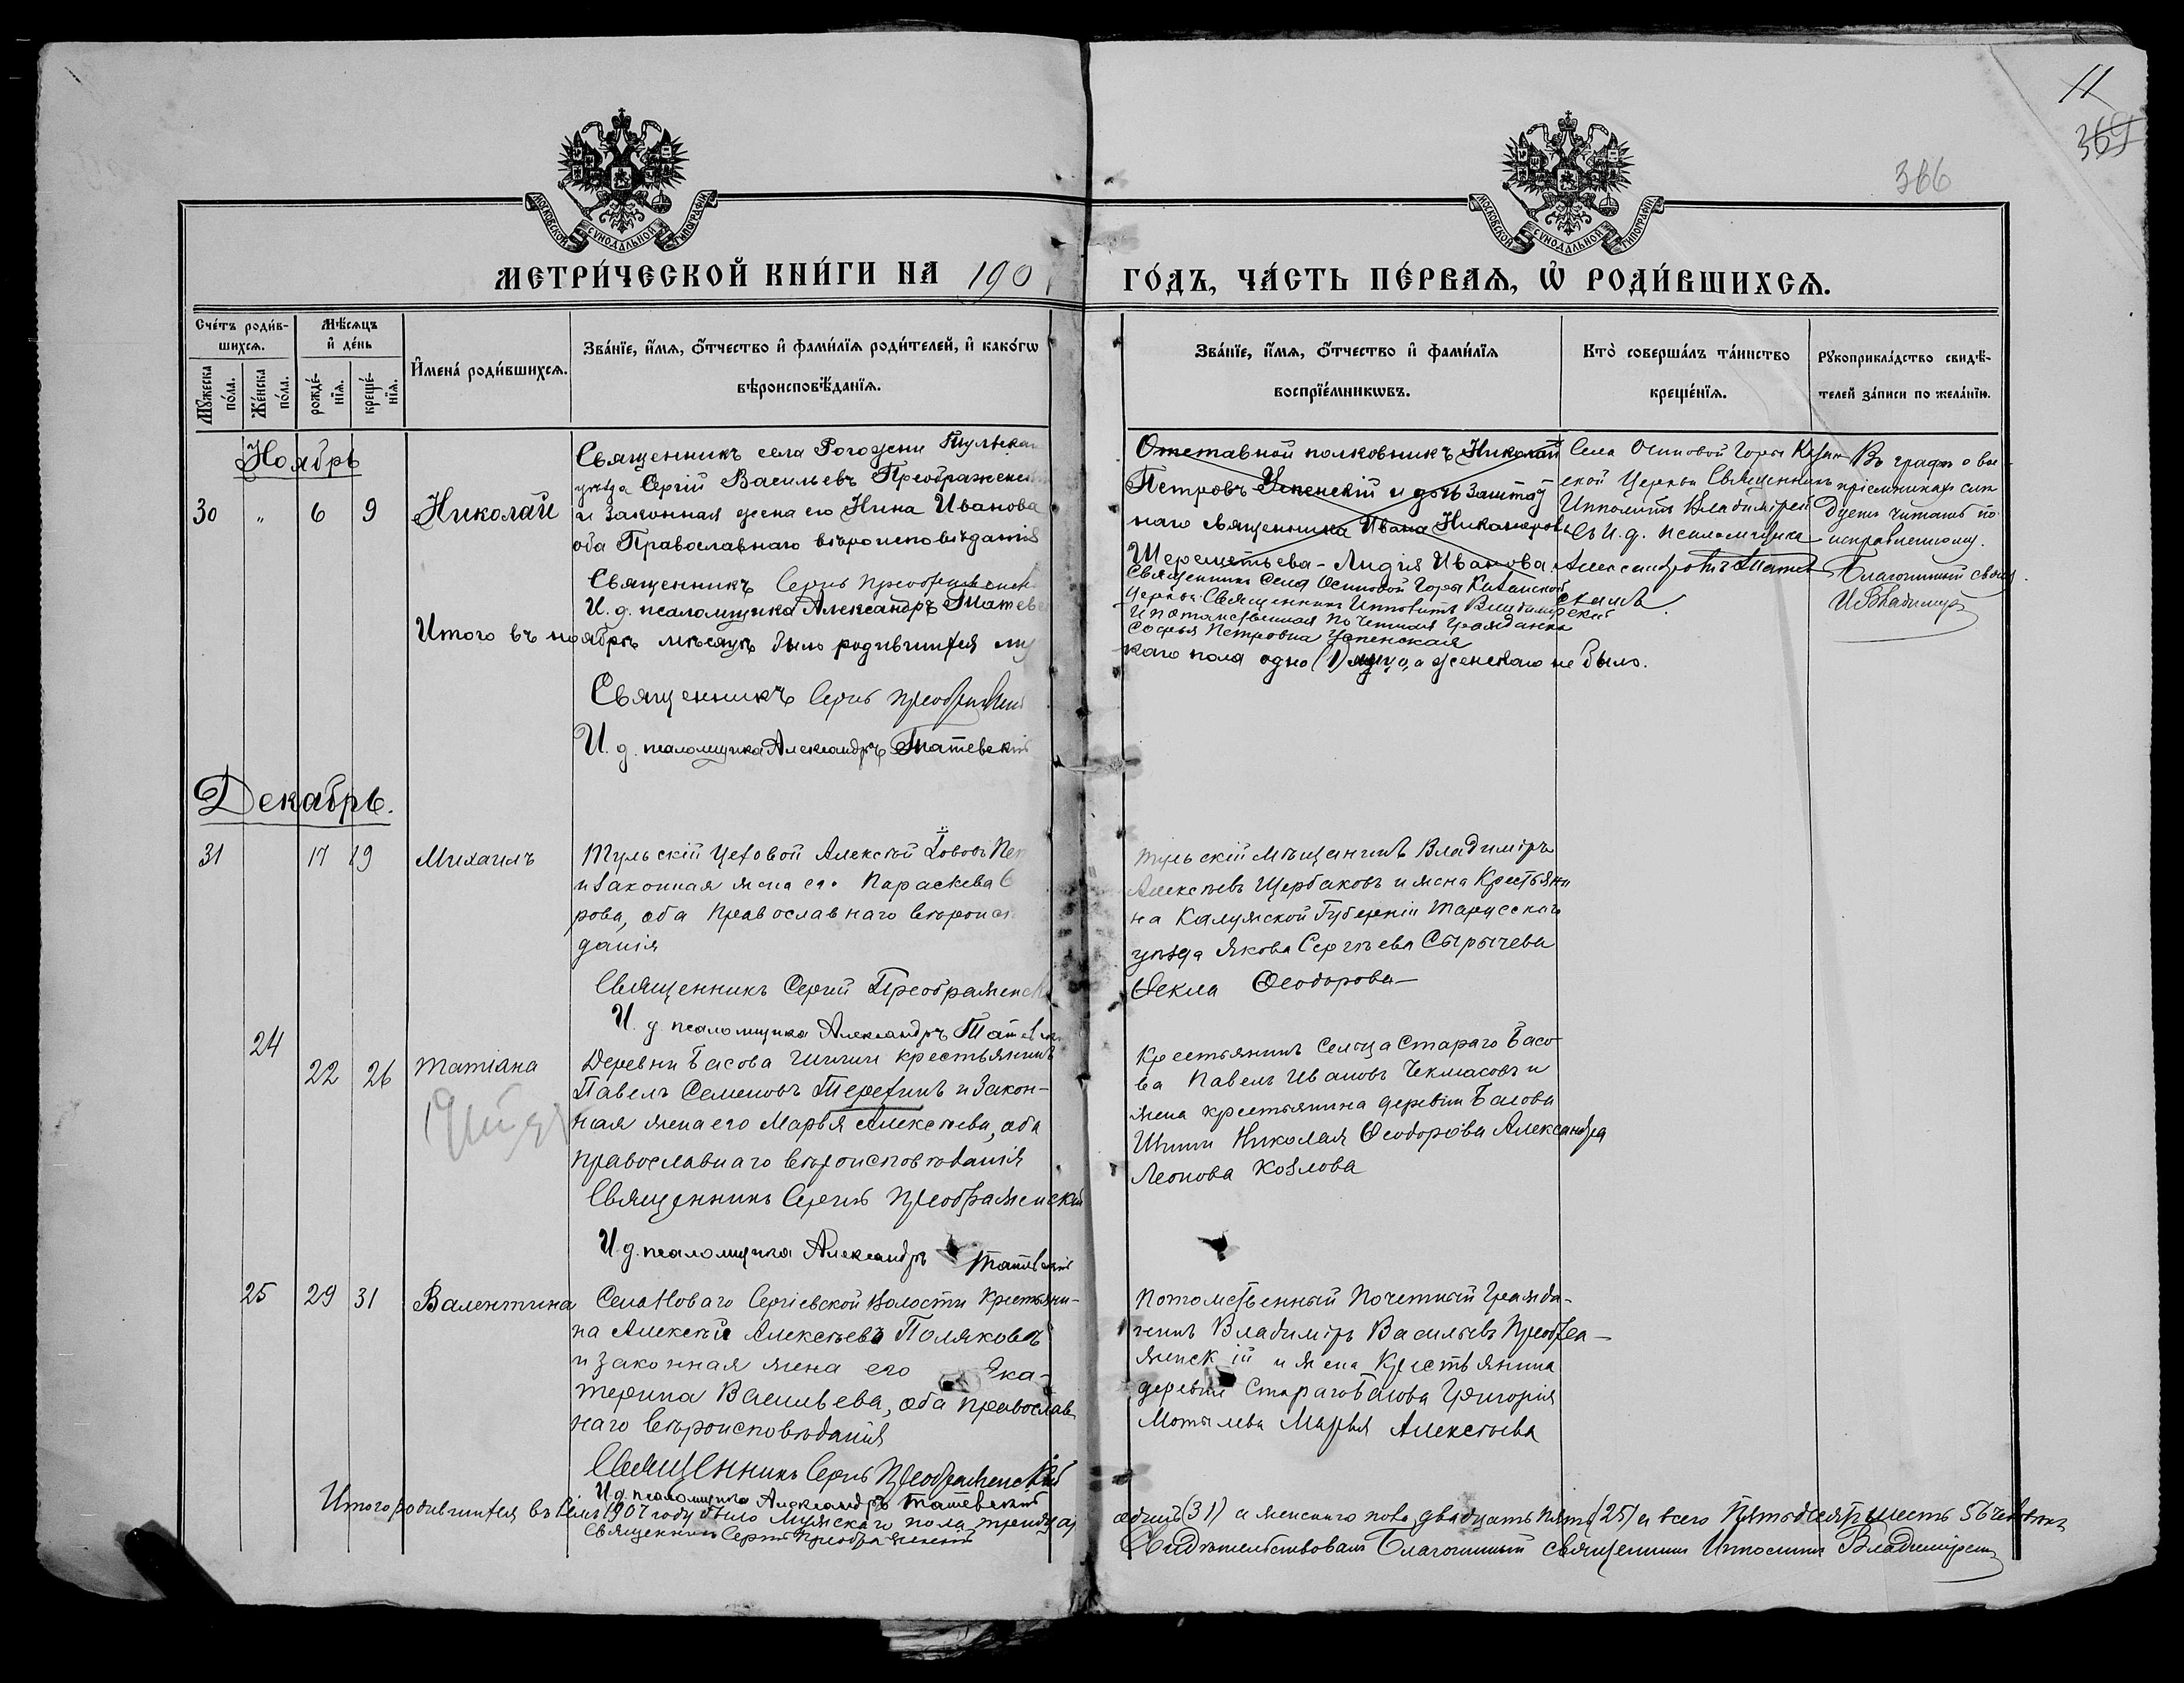 11
369
366
МОСКОВСКОЙ СѴНОДАЛЬНОЙ ТИПОГРАФІИ
МОСКОВСКОЙ СѴНОДАЛЬНОЙ ТИПОГРАФІИ
МЕТРИ́ЧЕСКОЙ КНИ́ГИ НА 190
ГО́ДЪ, ЧА́СТЬ ПЕ́РВАѦ, Ѡ҆ РОДИ́ВШИХСѦ.
Сче́тъ роди́в-
шихсѧ.
Мꙋ́жеска по́ла.
Же́нска по́ла.
Мѣ́сѧцъ
и҆ де́нь
рожде́-
нїѧ.
креще́-
нїѧ.
И҆мена̀ роди́вшихсѧ.
Зва́нїе, и҆́мѧ, ѻ҆́тчество и҆ фами́лїѧ роди́телей, и҆ како́гѡ
вѣроисповѣ́данїѧ.
Зва́нїе, и҆́мѧ, ѻ҆́тчество и҆ фами́лїѧ
воспрїе́мникѡвъ.
Кто̀ соверша́лъ та́инство
креще́нїѧ.
Рꙋкоприкла́дство свидѣ́-
телей за́писи по жела́нїю.
Ноябрь
30 " 6 9 Николай
Священникъ села Рогожни Тульска
уѣзда Сергій Васильевъ Преображенск
и законная жена его Нина Иванова
оба Православнаго вѣроисповѣданія
Священникъ Сергій Преображенск
И. д. псаломщика Александръ Татев
Отставной полковникъ Николай
Петровъ Успенскій и дочь заштат
наго священника Ивана Никаноров
Шереметьева - Лидія Иванова
Священникъ Села Осиновой Горы Казанской
Церкви Священникъ Ипполитъ Владимірскій
и потомственная почетная гражданка
Софья Петровна Успенская
Села Осиновой Горы Казан
ской Церкви Священникъ
Ипполитъ Владимірскій
съ И. д. псаломщика
Александромъ Татев
скимъ.
Въ графѣ о вос
пріемникахъ слѣ
дуетъ читать по
исправленному.
Благочинный свящ.
И Владимірск
Итого въ ноябрѣ мѣсяцѣ было родившихся муж
каго пола одно (1) лицо, а женскаго не было.
Священникъ Сергій Преображенск
И. д. псаломщика Александръ Татевскій
Декабрь.
31 17 19 Михаилъ
Тульскій Цеховой Алексѣй
и законная жена его Параскева
рова, оба православнаго вѣроис
данія
Священникъ Сергій Преображенск
И. д. псаломщика Александръ Татевск
Тульскій мѣщанинъ Владиміръ
Алексѣевъ Щербаковъ и жена Крестьяни
на Калужской Губерніи Тарусскаго
уѣзда Якова Сергѣева Сырычева
Ѳекла Ѳеодорова
24 22 26 Татіана
Деревни Басова крестьянинъ
Павелъ Семеновъ Терехинъ и закон-
ная жена его Марья Алексѣева, оба
православнаго вѣроисповѣданія
Священникъ Сергій Преображенскій
И. д. псаломщика Александръ Татевскій
Крестьянинъ Сельца Стараго Басо-
ва Павелъ Ивановъ Чекмасовъ и
жена крестьянина деревни Басова
Николая Ѳеодорова Александра
Леонова Козлова
25 29 31 Валентина
Села Новаго Сергіевской Волости Крестьяни-
на Алексѣй Алексѣевъ Поляковъ
и законная жена его Ека-
терина Васильева, оба православ
наго вѣроисповѣданія
Священникъ Сергій Преображенскій
И. д. псаломщика Александръ Татевскій
Потомственный Почетный Гражда-
нинъ Владиміръ Васильевъ Преобра-
женскій и жена Крестьянина
деревни Стараго Басова Григорія
Мотылева Марья Алексѣева
Итого родившихся въ семъ 1907 году было мужскаго пола тридцать
одинъ (31) а женскаго пола двадцать пять (25) а всего Пятьдесятъ шесть 56 человѣкъ
Священникъ Сергій Преображенскій
Свидѣтельствовалъ Благочинный священникъ Ипполитъ Владимірскій